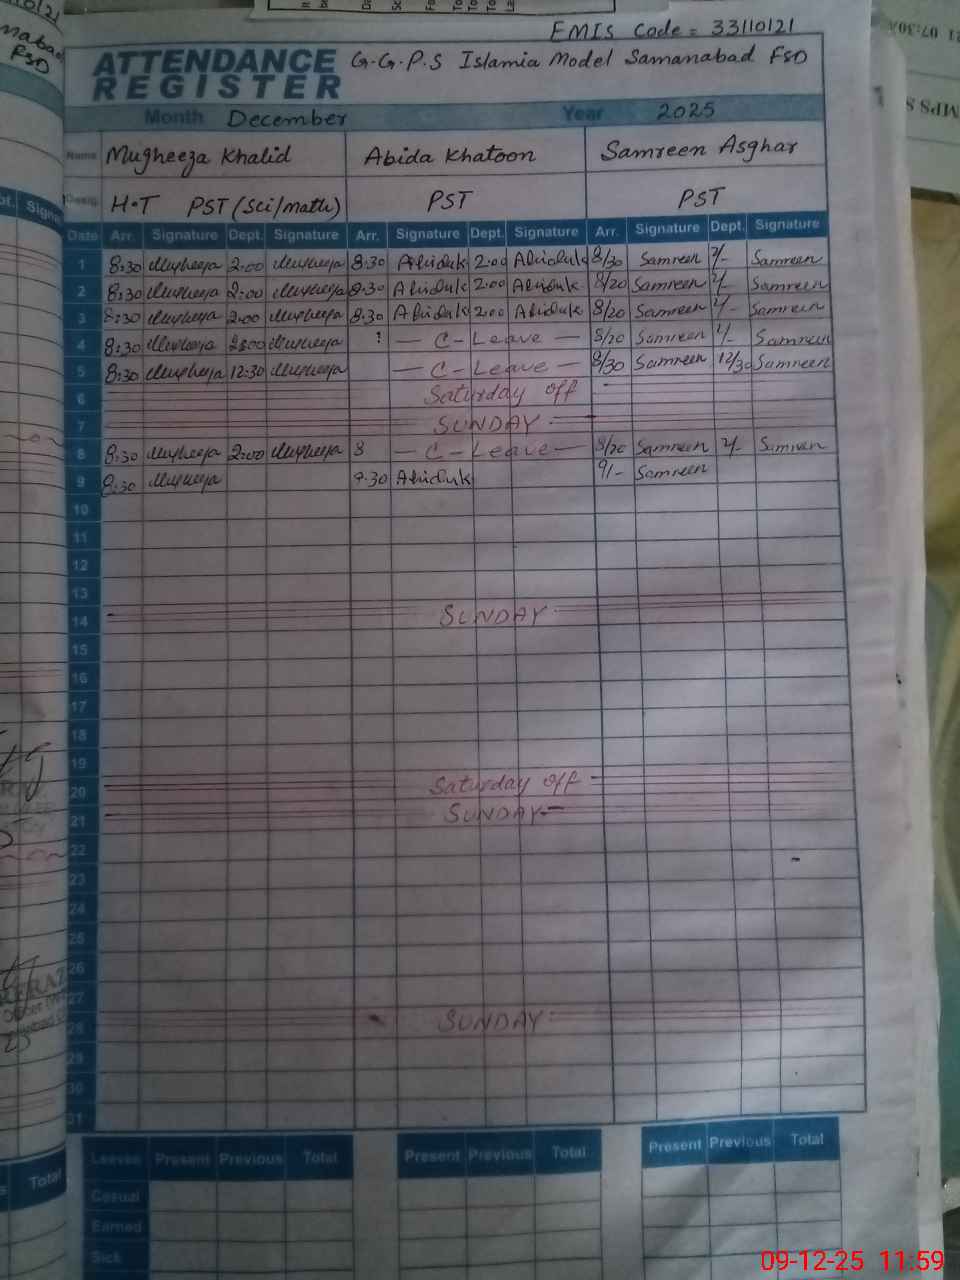 EMIS Code = 33110121
ATTENDANCE REGISTER G.G.P.S Islamia Model Samanabad FSD
Month December Year 2025
Name Mugheeza Khalid Abida Khatoon Samreen Asghar
Desig. H.T PST (Sci/math) PST PST
Date Arr. Signature Dept. Signature Arr. Signature Dept. Signature Arr. Signature Dept. Signature
1 8:30 Mugheeza 2:00 Mugheeza 8:30 Abidak 2:00 Abidak 8/30 Samreen 2/- Samreen
2 8:30 Mugheeza 2:00 Mugheeza 8:30 Abidak 2:00 Abidak 8/20 Samreen 2/- Samreen
3 8:30 Mugheeza 2:00 Mugheeza 8:30 Abidak 2:00 Abidak 8/20 Samreen 2/- Samreen
4 8:30 Mugheeza 2:00 Mugheeza — C-Leave — 8/20 Samreen 2/- Samreen
5 8:30 Mugheeza 12:30 Mugheeza — C-Leave — 8/30 Samreen 12/30 Samreen
6 Saturday off
7 SUNDAY
8 8:30 Mugheeza 2:00 Mugheeza 8 — C-Leave — 8/20 Samreen 2/- Samreen
9 8:30 Mugheeza 9.30 Abidak 9/- Samreen
10
11
12
13
14 SUNDAY
15
16
17
18
19
20 Saturday off
21 SUNDAY
22
23
24
25
26
27
28 SUNDAY
29
30
31
Leaves Present Previous Total Present Previous Total Present Previous Total
Casual
Earned
Sick
09-12-25 11:59